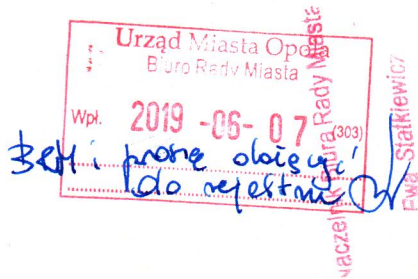 Urząd Miasta Opo
Biuro Rady Miasta
Wpł. 2019 -06- 07 (303)
BRM i proszę dołączyć
do rejestru
Naczelnik Biura Rady Miasta
Ewa Statkiewicz